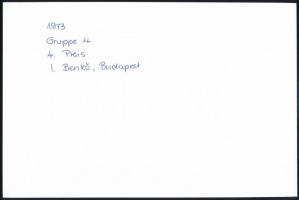 1973
Gruppe 4
4. Preis
I. Benkő, Budapest